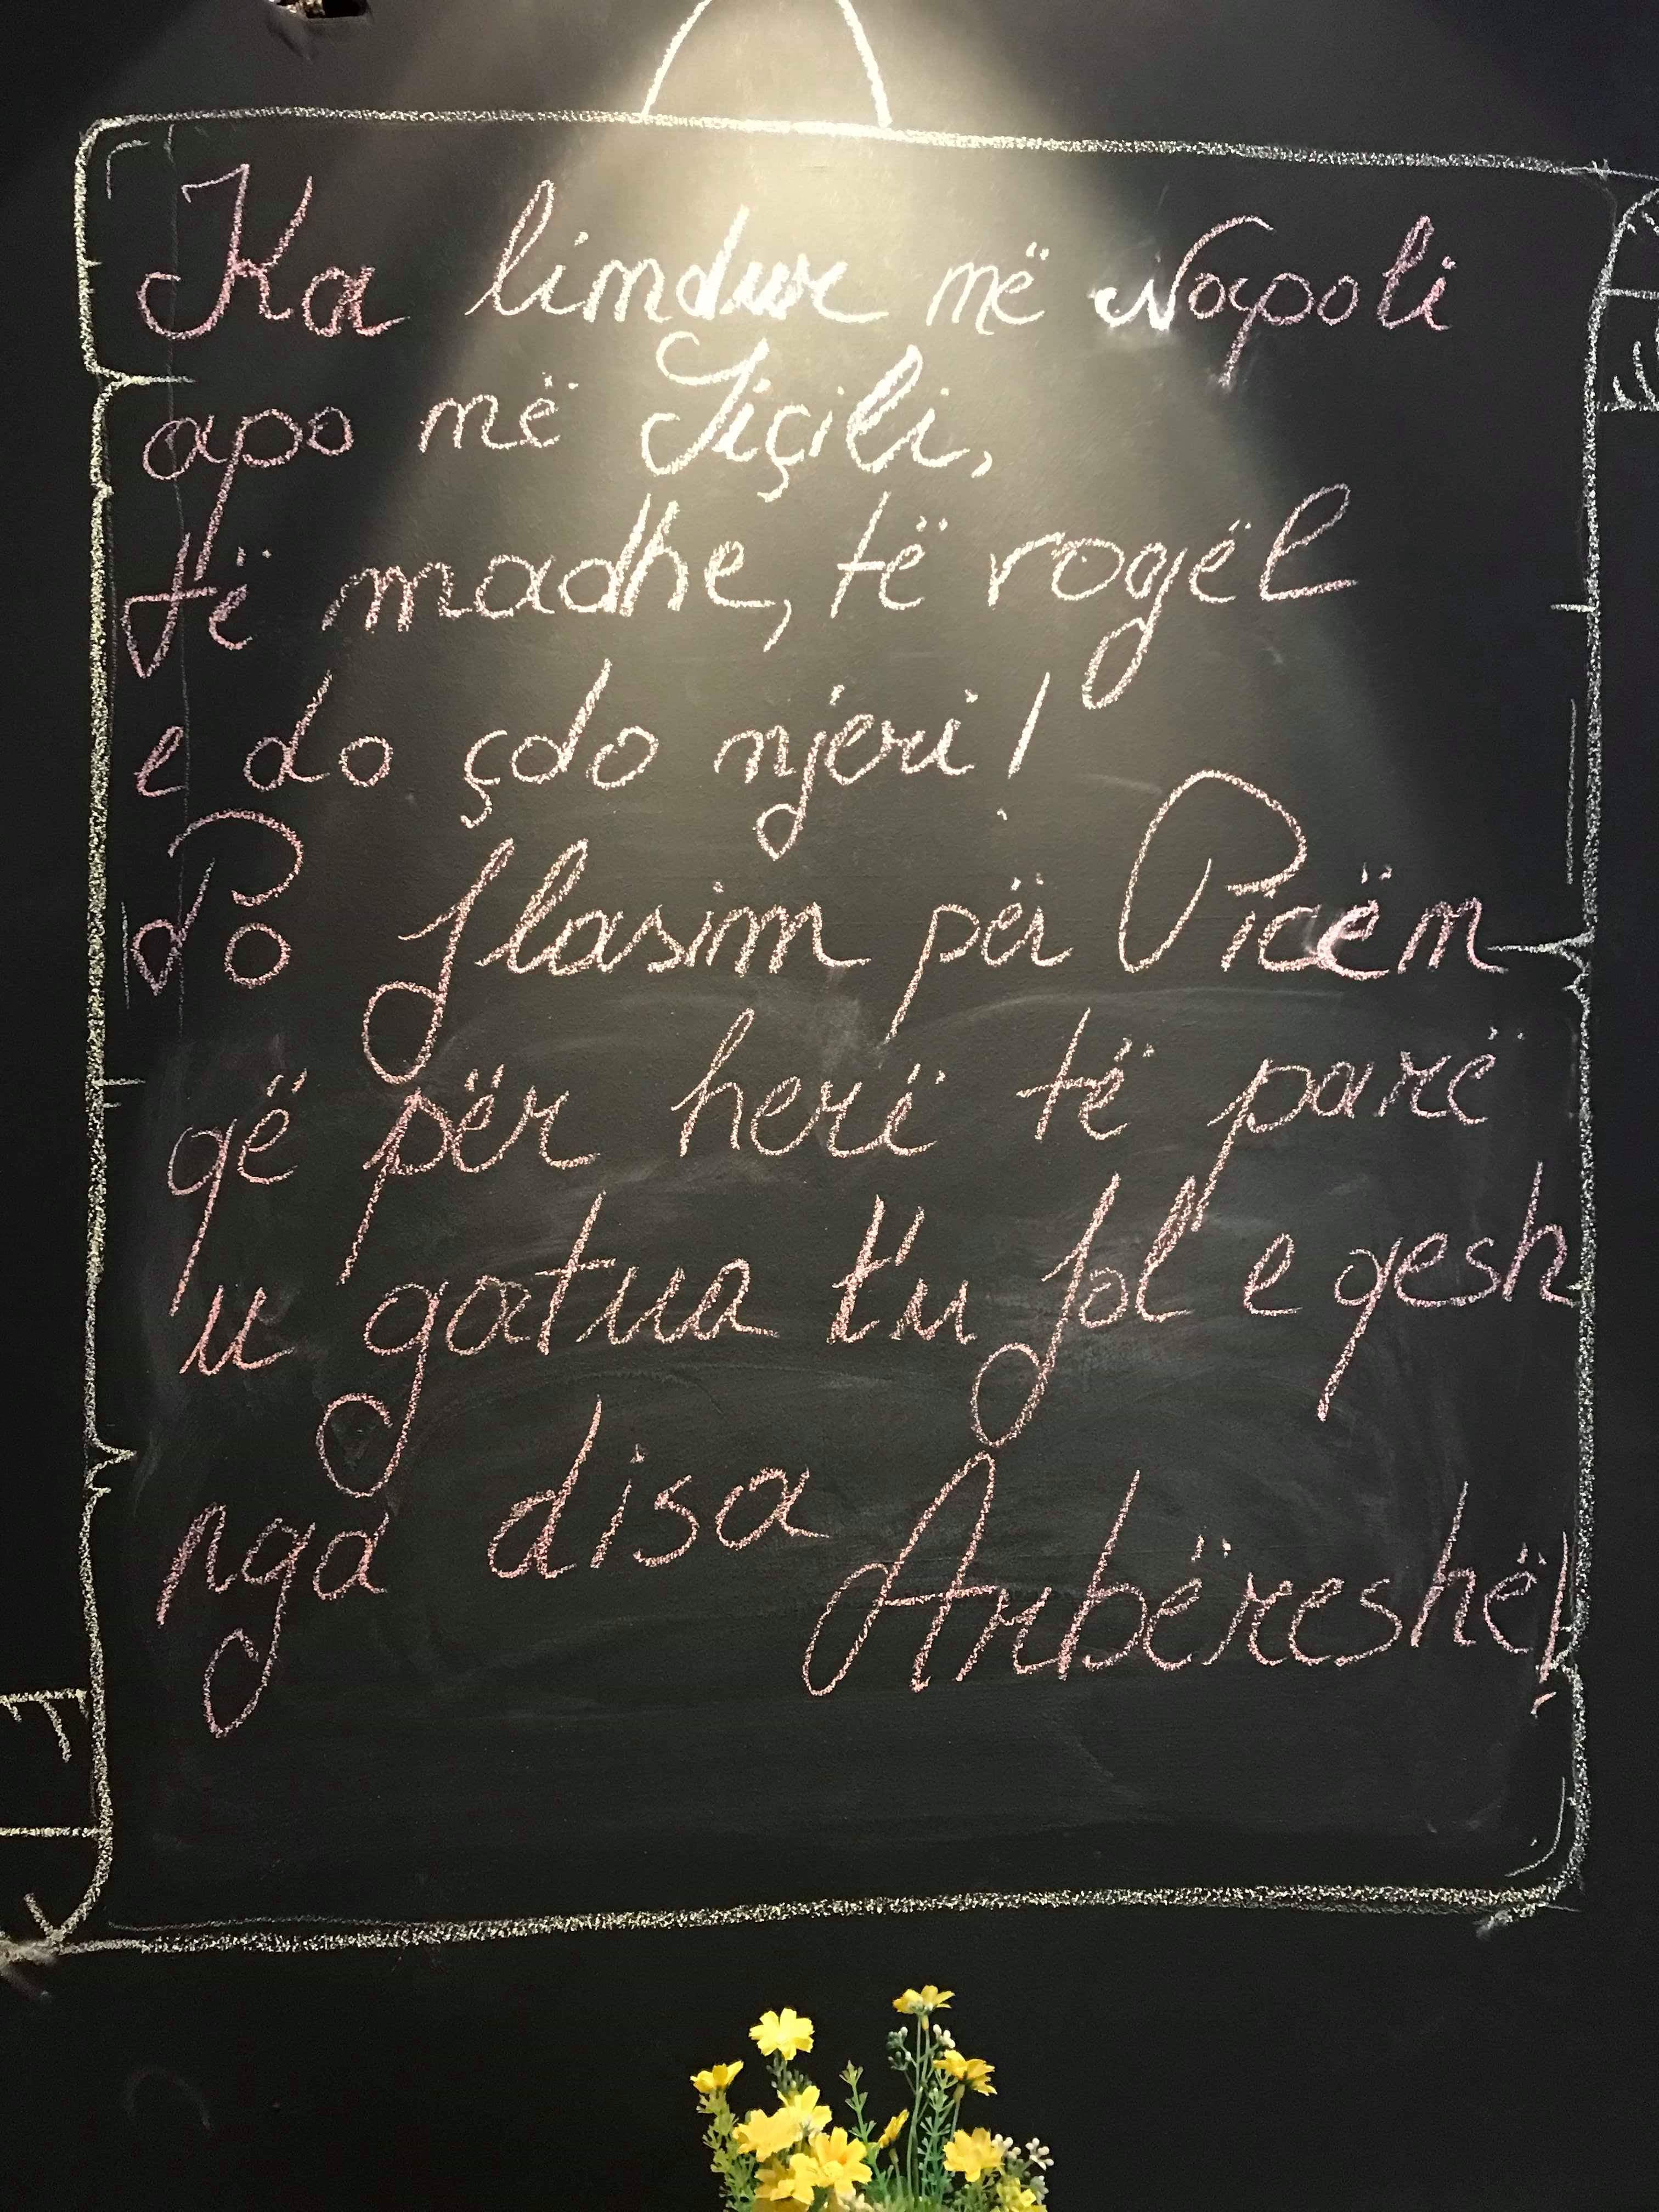 Ka lindur në Napoli
apo në Siçili,
të madhe, të vogël
e do çdo njeri!
Po flasim për Picën
që për herë të parë
u gatua t'u fol e qesh
nga disa Arbëreshë!